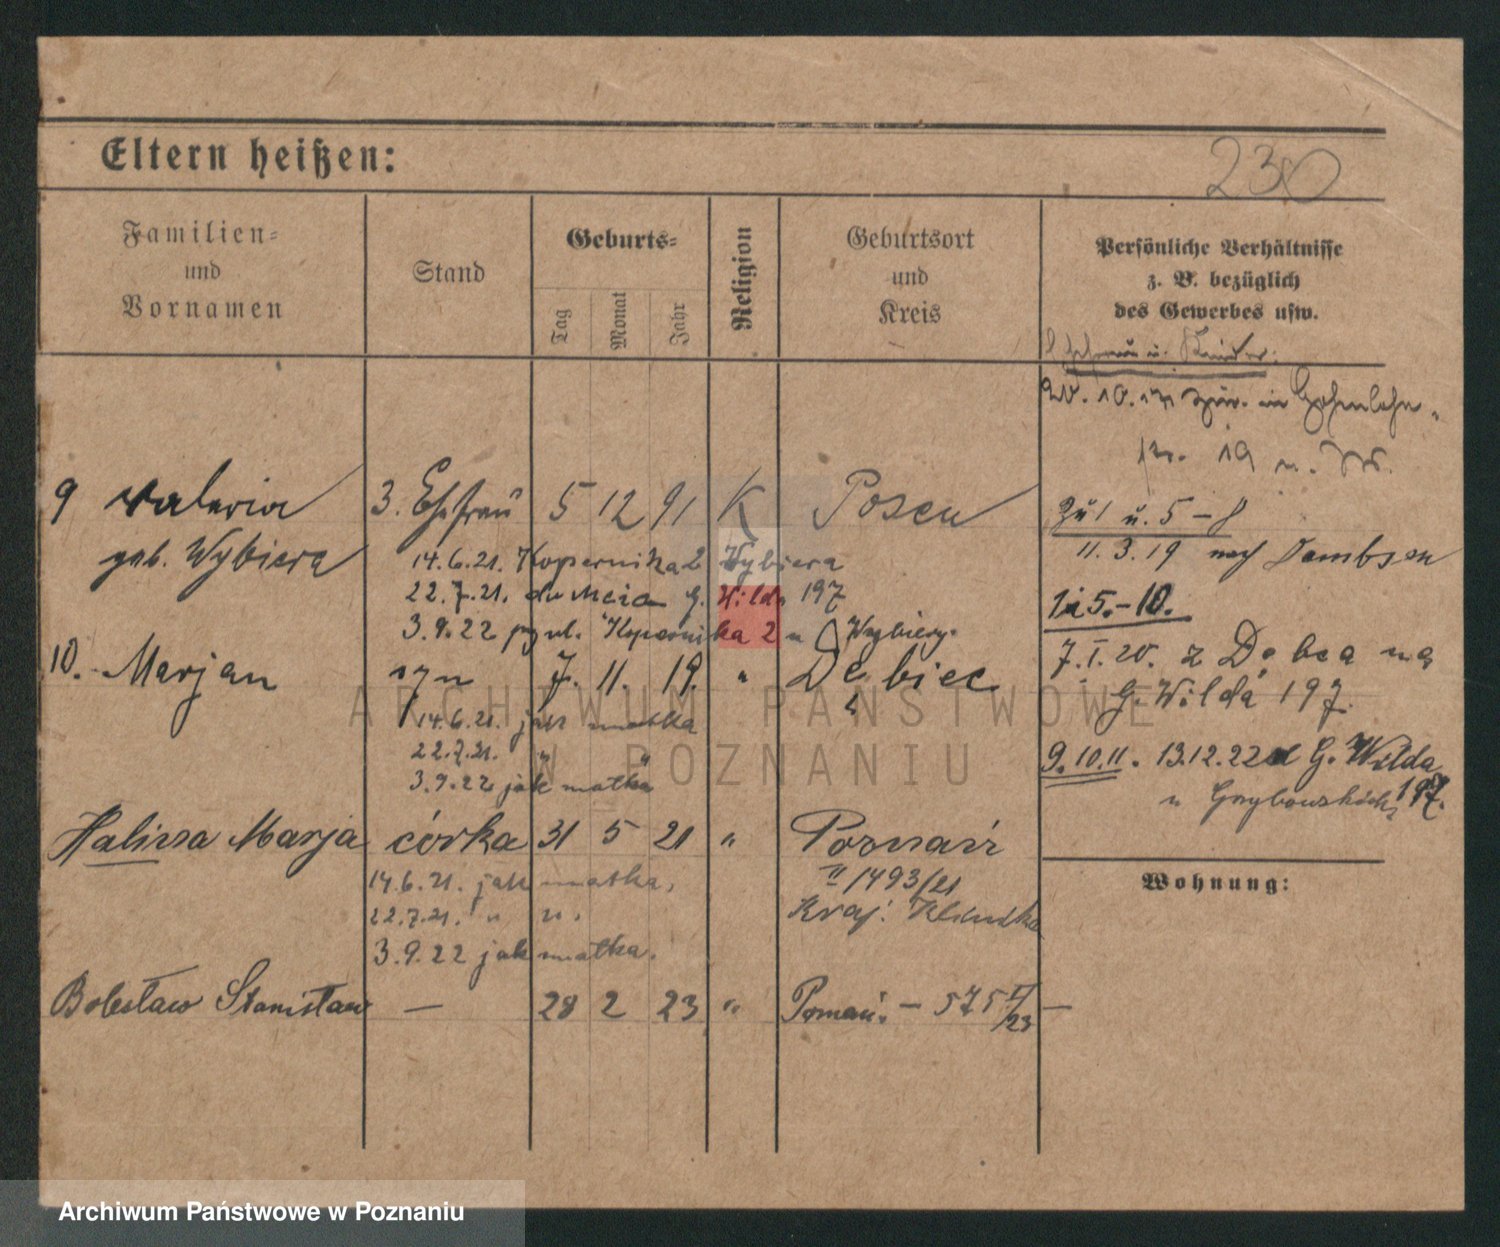 Eltern heißen:
230
Familien-
und
Vornamen
Stand
Geburts-
Tag
Monat
Jahr
Religion
Geburtsort
und
Kreis
Persönliche Verhältnisse
z. B. bezüglich
des Gewerbes usw.
Ehefrau u. Kinder:
9 Valeria 3. Ehefrau 5 12 91 K Posen
geb. Wybiera
14.6.21. Kopernika 2 Wybiera
22.7.21. G. Wilda 197
3.9.22 Kopernika 2 u Wybiery.
10. Marjan syn 7. 11. 19. " Dębiec
14.6.21. jak matka
22.7.21. " "
3.9.22 jak matka
Halina Marja córka 31 5 21 " Poznań
II 1493/21
14.6.21. jak matka.
22.7.21. " ".
3.9.22 jak matka.
Bolesław Stanisław — 28 2 23 " Poznań. — 575 II/23 —
19 u.
Zu 1 u. 5-8
11.3.19 nach Dembsen
5.-10.
7.I.20. z Dębca na
G. Wilda 197.
9.10.11. 13.12.22 G. Wilda
197.
u
Wohnung:
ARCHIWUM PAŃSTWOWE
W POZNANIU
Archiwum Państwowe w Poznaniu